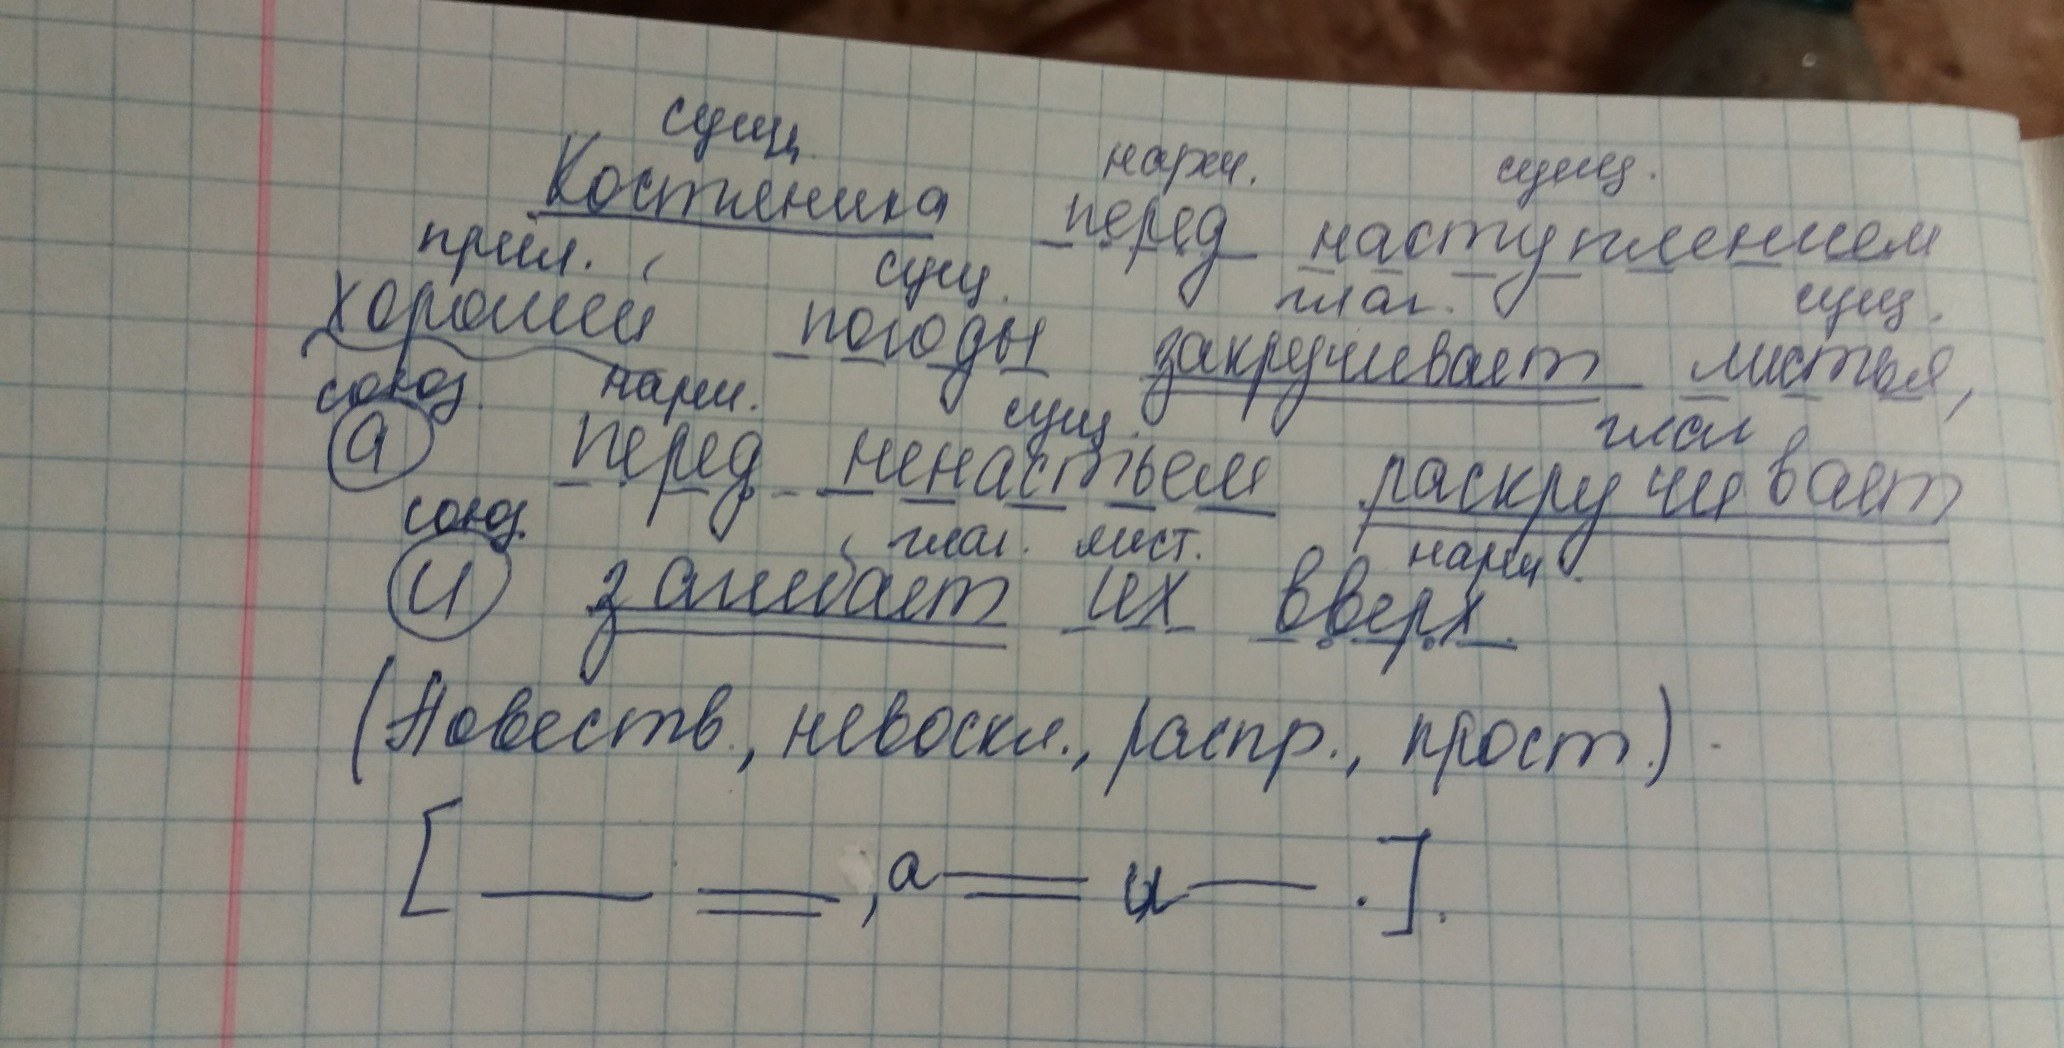 сущ.
Костяника
нареч.
сущ.
перед наступлением
прил.
сущ.
глаг.
сущ.
хорошей погоды закручивает листья,
союз
нареч.
сущ.
глаг
а перед ненастьем раскручивает
союз.
глаг. мест.
нареч.
и загибает их вверх.
(Повеств., невоскл., распр., прост.).
[ , а и . ].